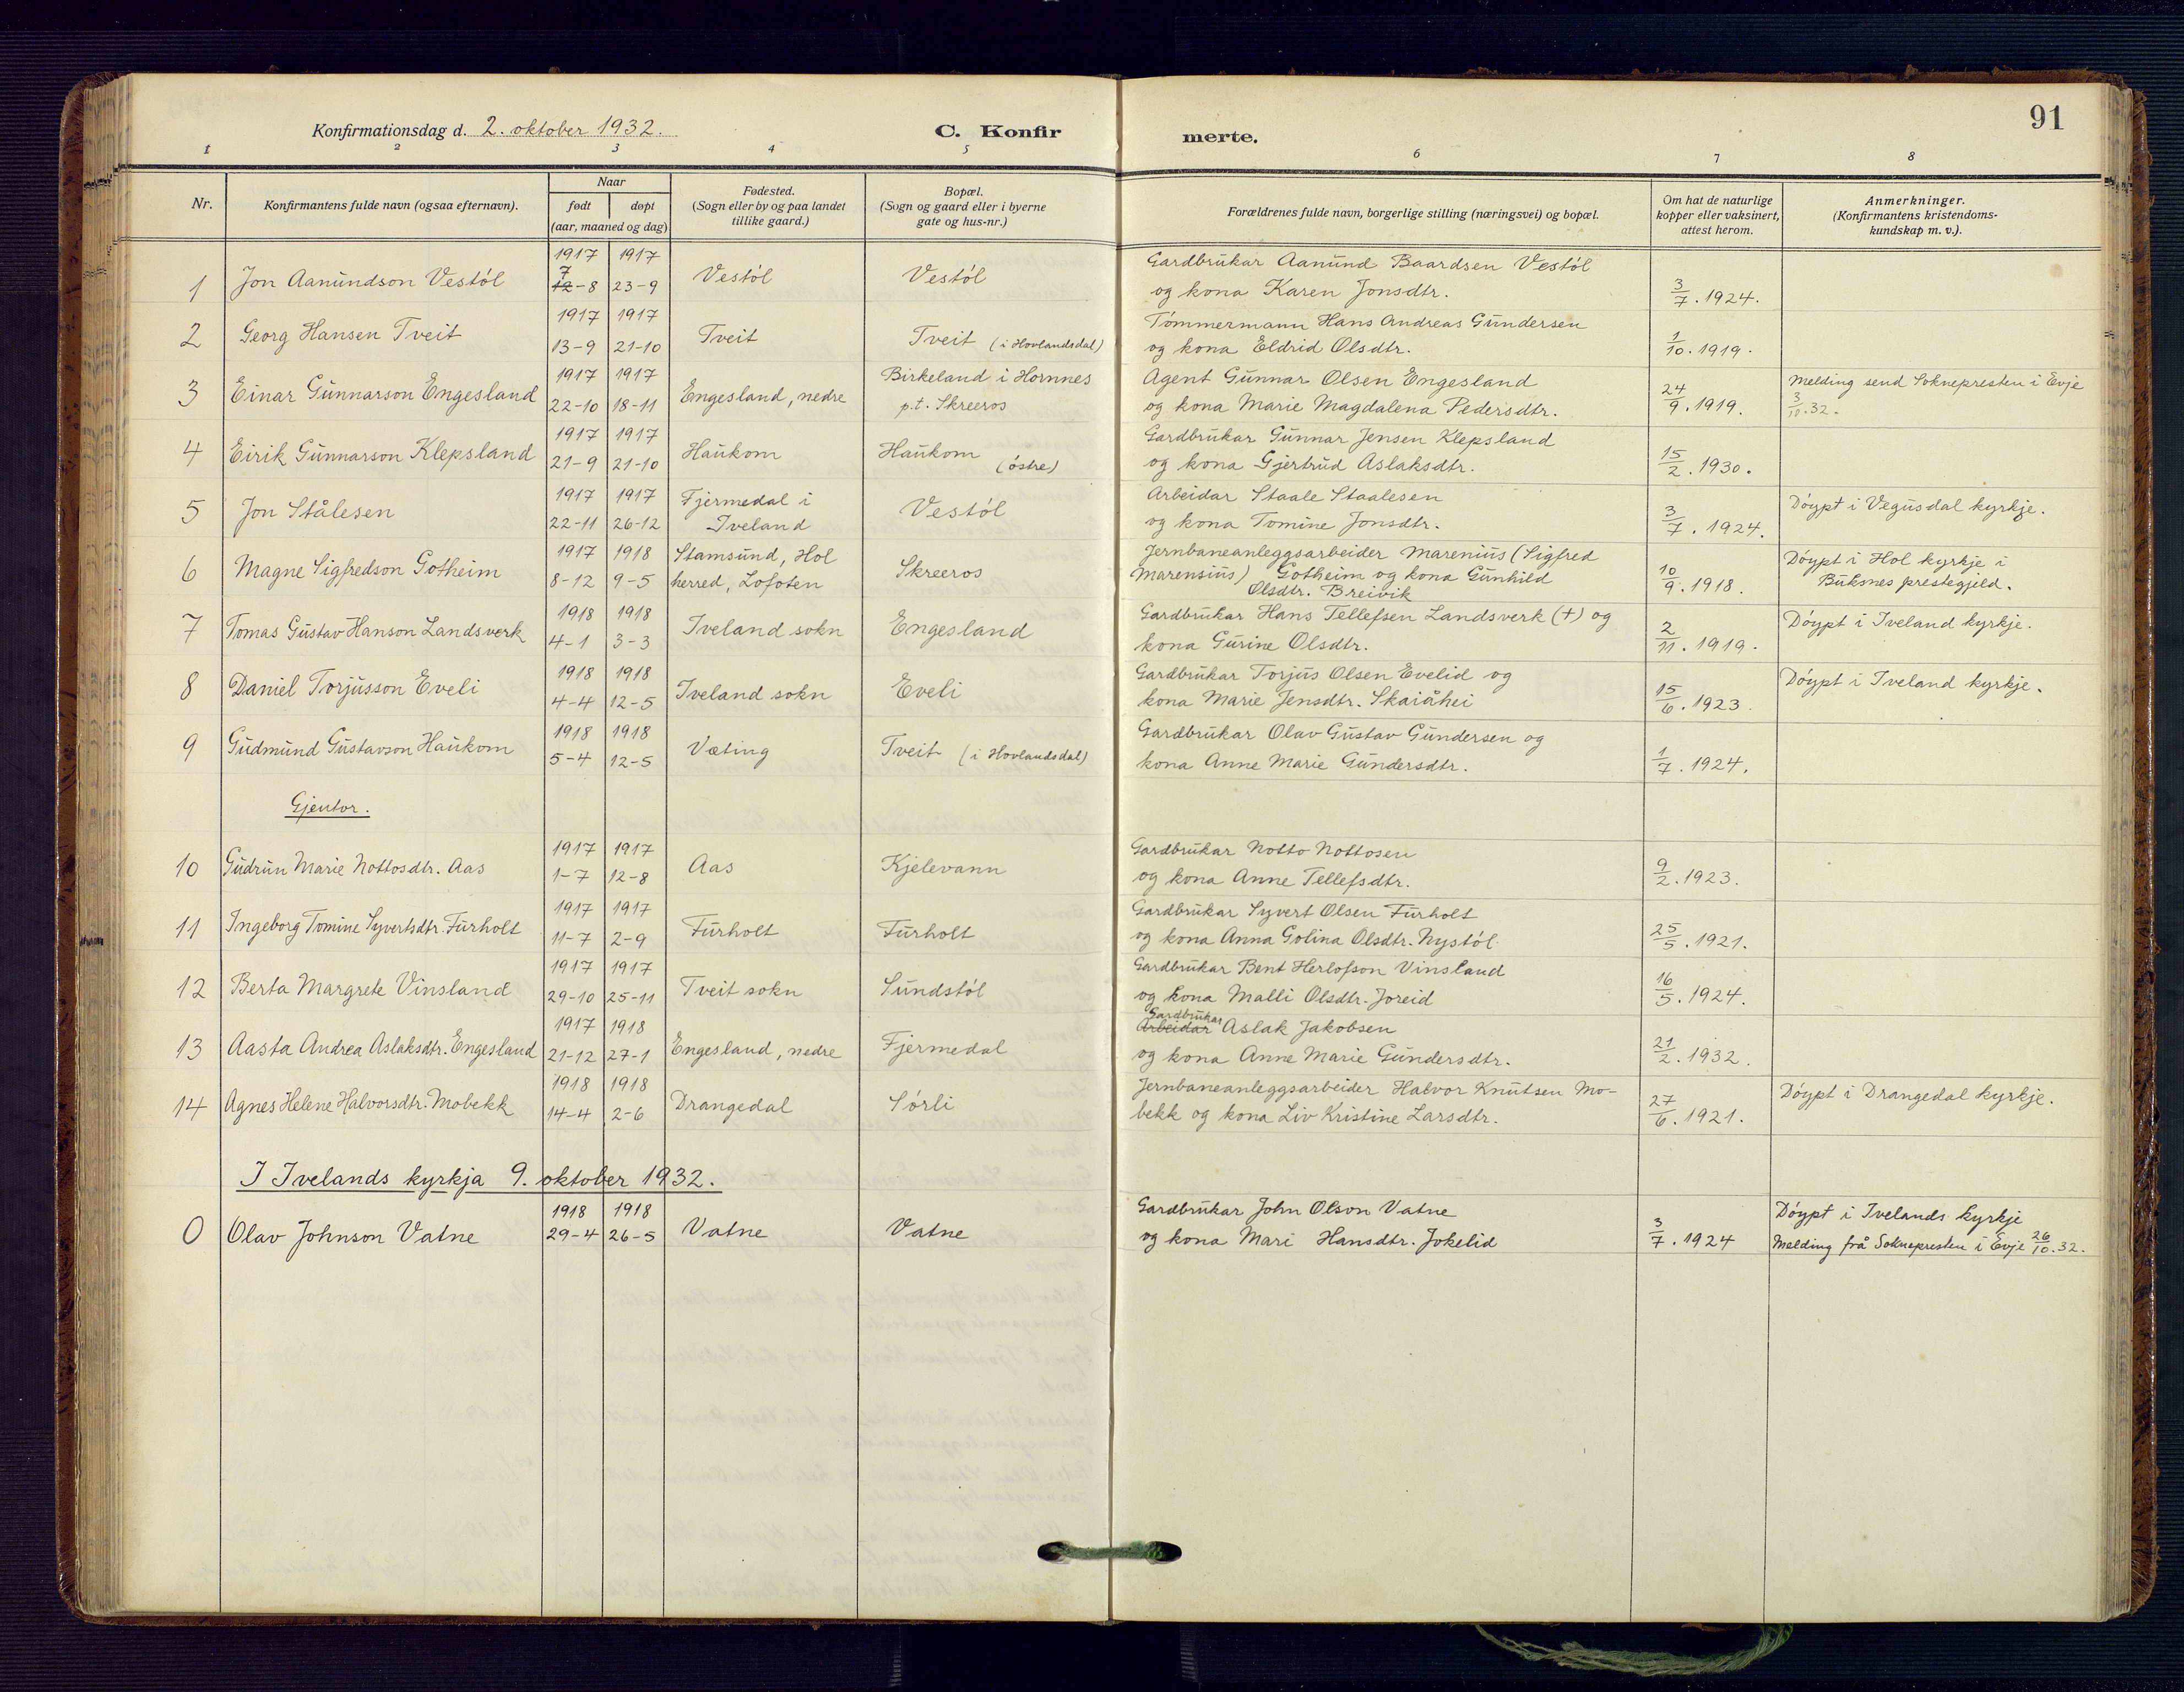 91
Konfirmationsdag d. 2. oktober 1932.
C. Konfir
merte.
1 2 3 4 5 6 7 8
Nr.
Konfirmantens fulde navn (ogsaa efternavn).
Naar
født døpt
(aar, maaned og dag)
Fødested.
(Sogn eller by og paa landet
tillike gaard.)
Bopæl.
(Sogn og gaard eller i byerne
gate og hus-nr.)
Forældrenes fulde navn, borgerlige stilling (næringsvei) og bopæl.
Om hat de naturlige
kopper eller vaksinert,
attest herom.
Anmerkninger.
(Konfirmantens kristendoms-
kundskap m. v.).
1917 1917 Gardbrukar Aanund Baardsen Vestöl
7
1 Jon Aanundson Vestöl 12-8 23-9 Vestöl Vestöl og kona Karen Jonsdtr. 3/7. 1924.
1917 1917 Tömmermann Hans Andreas Gundersen
2 Georg Hansen Tveit 13-9 21-10 Tveit Tveit (i Hovlandsdal) og kona Eldrid Olsdtr. 1/10. 1919.
1917 1917 Birkeland i Hornnes Agent Gunnar Olsen Engesland Melding send Soknepresten i Evje
3 Einar Gunnarson Engesland 22-10 18-11 Engesland, nedre p.t. Skreeros og kona Marie Magdalena Pedersdtr. 24/9. 1919. 3/10.32.
1917 1917 Gardbrukar Gunnar Jensen Klepsland
4 Eirik Gunnarson Klepsland 21-9 21-10 Haukom Haukom (östre) og kona Gjertrud Aslaksdtr. 15/2. 1930.
1917 1917 Fjermedal i Arbeidar Staale Staalesen Döypt i Vegusdal kyrkje.
5 Jon Stålesen 22-11 26-12 Iveland Vestöl og kona Tomine Jonsdtr. 3/7. 1924.
1917 1918 Stamsund, Hol Jernbaneanleggsarbeider Marenius (Sigfred Döypt i Hol kyrkje i
6 Magne Sigfredson Gotheim 8-12 9-5 herred, Lofoten Skreeros Marensius) Gotheim og kona Gunhild 10/9. 1918. Buksnes prestegjeld.
Olsdtr. Breivik
1918 1918 Gardbrukar Hans Tellefsen Landsverk (+) og Döypt i Iveland kyrkje.
7 Tomas Gustav Hanson Landsverk 4-1 3-3 Iveland sokn Engesland kona Gurine Olsdtr. 2/11. 1919.
1918 1918 Gardbrukar Torjus Olsen Evelid og Döypt i Iveland kyrkje.
8 Daniel Torjusson Eveli 4-4 12-5 Iveland sokn Eveli kona Marie Jensdtr. Skaiåhei 15/6. 1923.
1918 1918 Gardbrukar Olav Gustav Gundersen og
9 Gudmund Gustavson Haukom 5-4 12-5 Væting Tveit (i Hovlandsdal) kona Anne Marie Gundersdtr. 1/7. 1924.
Gjentor.
1917 1917 Gardbrukar Notto Nottosen
10 Gudrun Marie Nottosdtr. Aas 1-7 12-8 Aas Kjelevann og kona Anne Tellefsdtr. 9/2. 1923.
1917 1917 Gardbrukar Syvert Olsen Furholt
11 Ingeborg Tomine Syvertsdtr. Furholt 11-7 2-9 Furholt Furholt og kona Anna Golina Olsdtr. Nystöl 25/5. 1921.
1917 1917 Gardbrukar Bent Herlofson Vinsland
12 Berta Margrete Vinsland 29-10 25-11 Tveit sokn Sundstöl og kona Malli Olsdtr. Joreid 16/5. 1924.
Gardbrukar
1917 1918 Arbeidar Aslak Jakobsen
13 Aasta Andrea Aslaksdtr. Engesland 21-12 27-1 Engesland, nedre Fjermedal og kona Anne Marie Gundersdtr. 21/2. 1932.
1918 1918 Jernbaneanleggsarbeider Halvor Knutsen Mo- Döypt i Drangedal kyrkje.
14 Agnes Helene Halvorsdtr. Mobekk 14-4 2-6 Drangedal Sörli bekk og kona Liv Kristine Larsdtr. 27/6. 1921.
I Ivelands kyrkja 9. oktober 1932.
1918 1918 Gardbrukar John Olson Vatne Döypt i Ivelands kyrkje
0 Olav Johnson Vatne 29-4 26-5 Vatne Vatne og kona Mari Hansdtr. Jokelid 3/7. 1924 Melding frå Soknepresten i Evje 26/10.32.